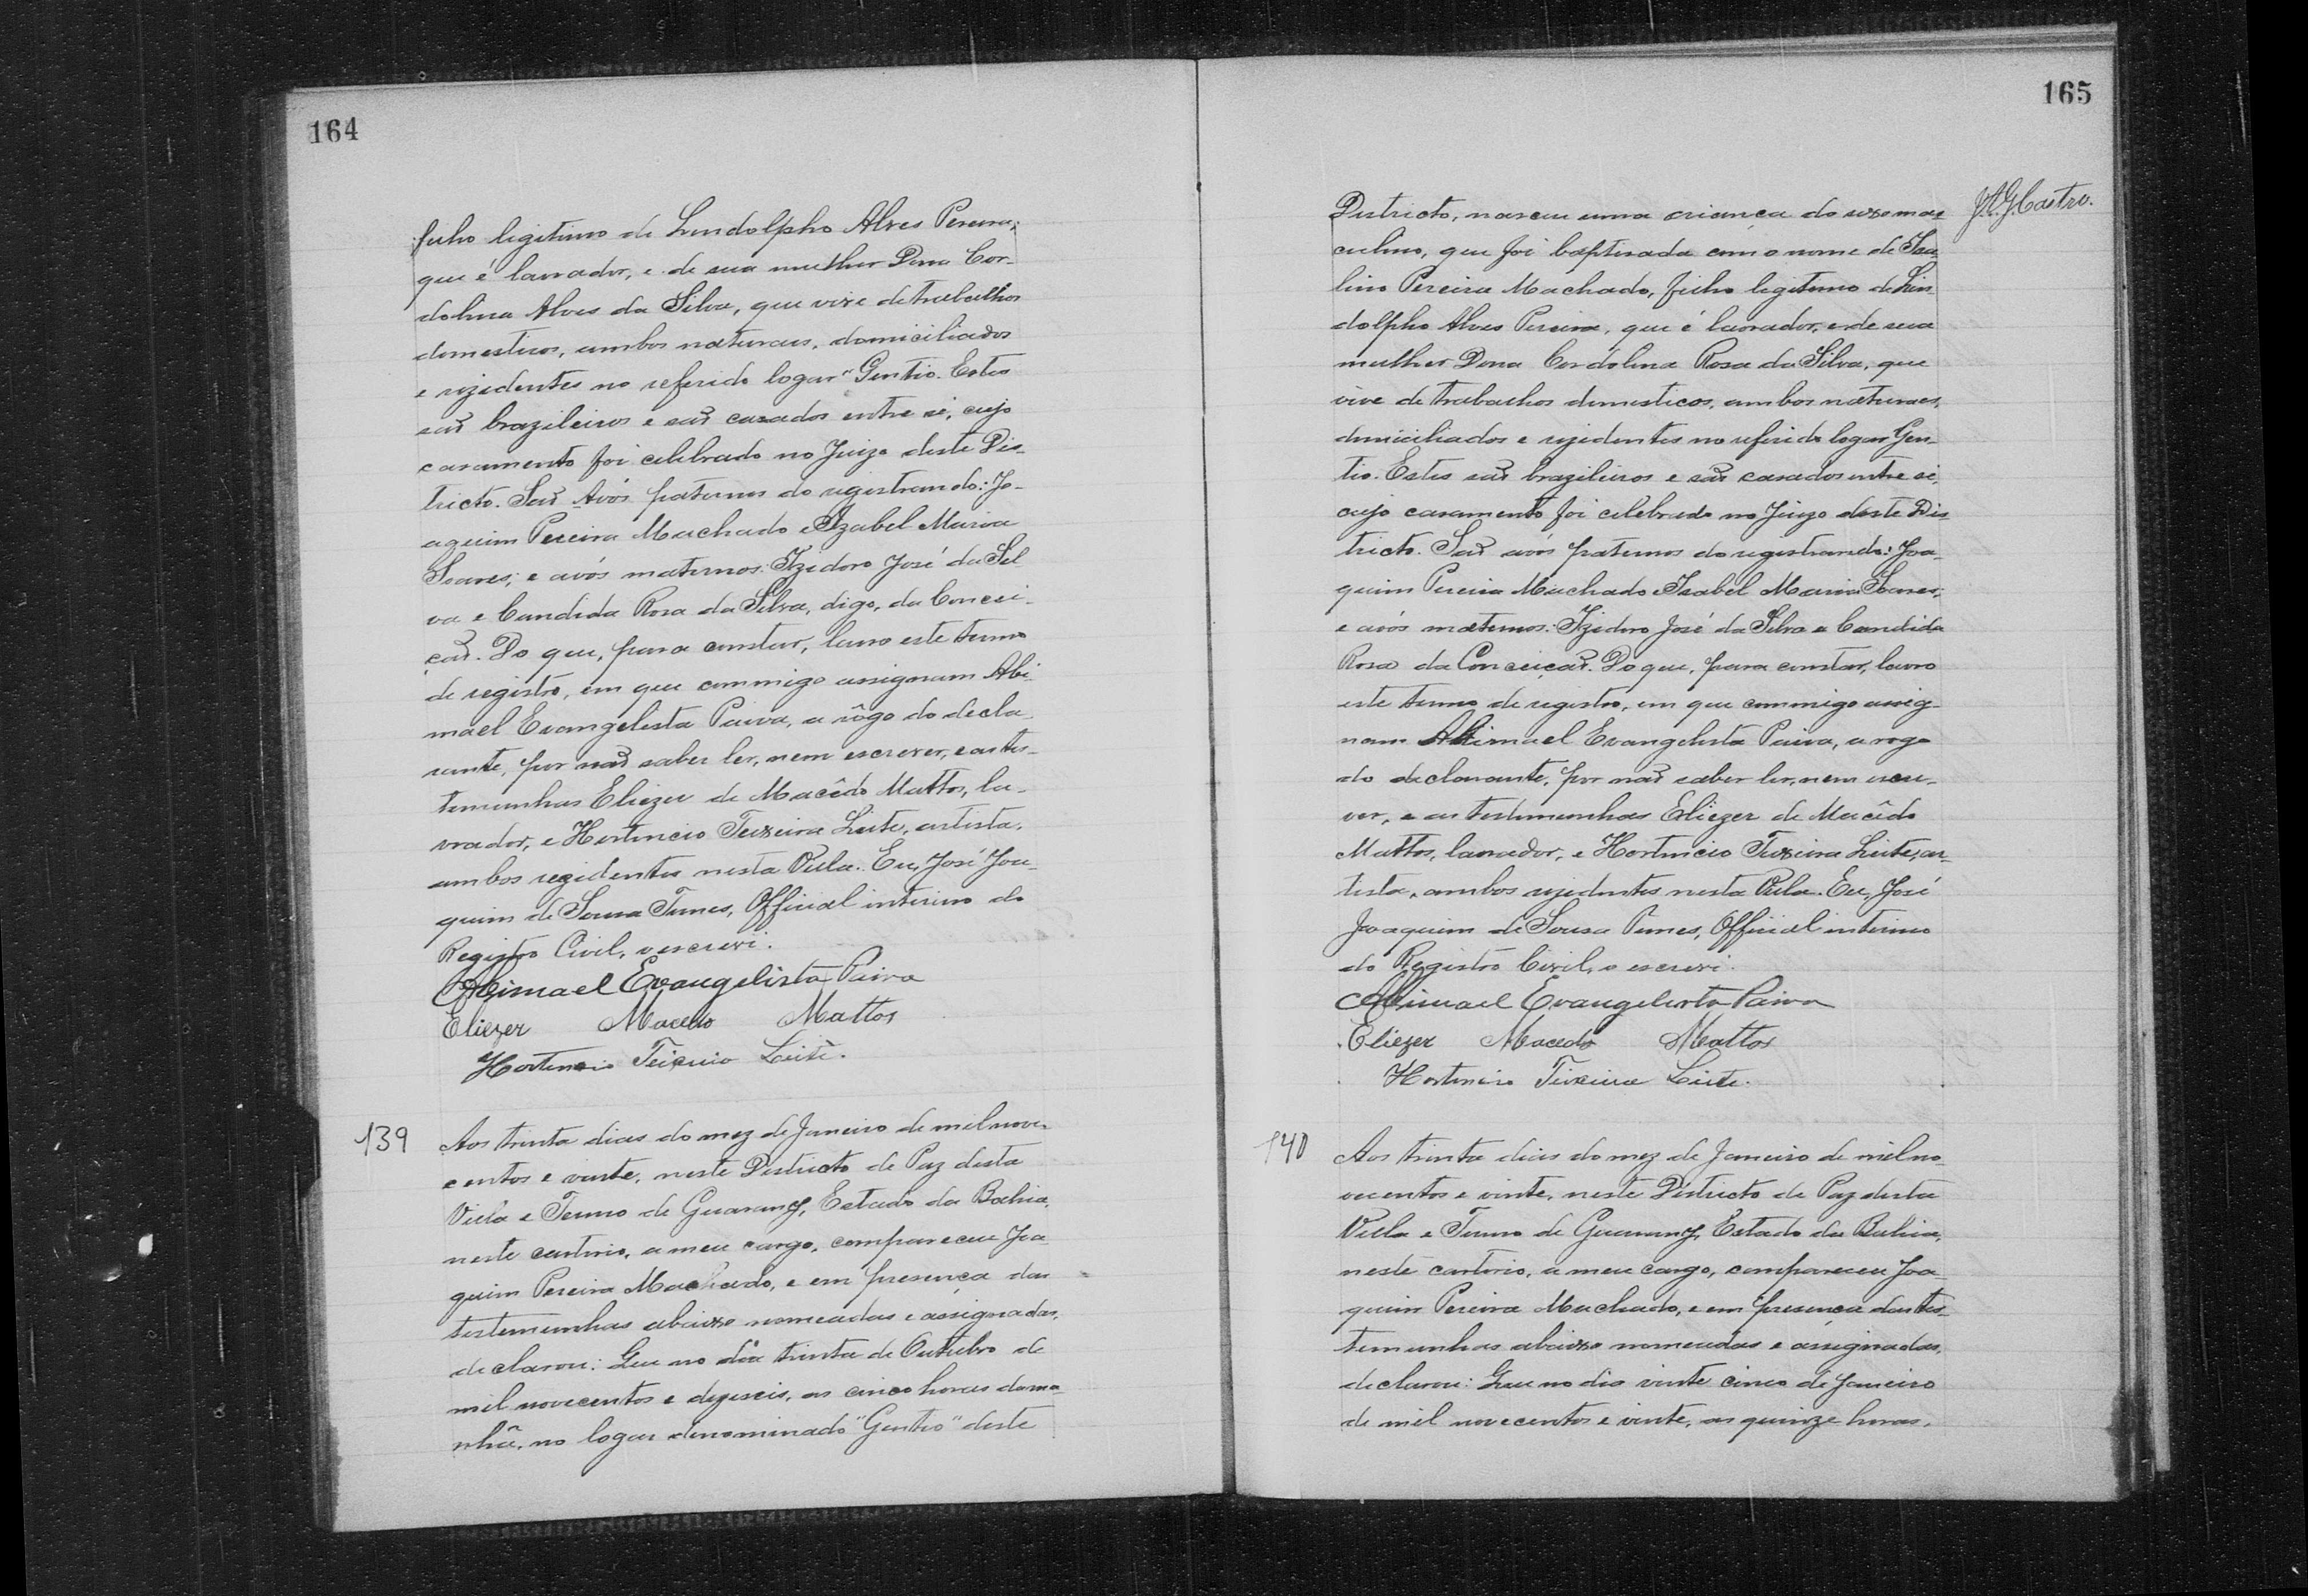 164
filho legitimo de Lindolpho Alves Pereira,
que é lavrador, e de sua mulher Dona Cor-
dolina Alves da Silva, que vive de trabalhos
domesticos, ambos naturaes, domiciliados
e rezidentes no referido logar "Gentio. Estes
são brazileiros e são casados entre si, cujo
casamento foi celebrado no Juizo deste Dis-
tricto. São Avós paternos do registrando: Jo-
aquim Pereira Machado e Izabel Maria
Soares; e avós maternos: Izidoro José da Sil
va e Candida Rosa da Silva, digo, da Concei-
ção. Do que, para constar, lavro este termo
de registro, em que commigo assignam Abi-
mael Evangelista Paiva, a rôgo do decla-
rante, por não saber ler, nem escrever, e as tes-
temunhas Eliezer de Macêdo Mattos, la-
vrador, e Hortencio Teixeira Leite, artista,
ambos rezidentes nesta Villa. Eu, José Joa-
quim de Sousa Tunes, Official interino do
Registro Civil, o escrevi.
Abimael Evangelista Paiva
Eliezer Macedo Mattos
Hortencio Teixeira Leite.
139
Aos trinta dias do mez de Janeiro de mil nove-
centos e vinte, neste Districto de Paz desta
Villa e Termo de Guarany, Estado da Bahia,
neste cartorio, a meu cargo, compareceu Joa
quim Pereira Machado, e em presença das
testemunhas abaixo nomeadas e assignadas,
declarou: Que no dia trinta de Outubro de
mil novecentos e dezeseis, as cinco horas da ma-
nhã, no logar denominado "Gentio" deste
165
J.A.G. Castro.
Districto, nasceu uma criança do sexo mas-
culino, que foi baptisada com o nome de
lino Pereira Machado, filho legitimo de Lin
dolpho Alves Pereira, que é lavrador, e de sua
mulher Dona Cordolina Rosa da Silva, que
vive de trabalhos domesticos, ambos naturaes,
domiciliados e rezidentes no referido logar Gen-
tio. Estes são brazileiros e são casados entre si,
cujo casamento foi celebrado no Juizo deste Dis
tricto. São avós paternos do registrando: Joa-
quim Pereira Machado e Isabel Maria Soares;
e avós maternos: Izidoro José da Silva e Candida
Rosa da Conceição. Do que, para constar, lavro
este termo de registro, em que commigo assig-
nam Abimael Evangelista Paiva, a rogo
do declarante, por não saber ler, nem escre-
ver, e as testemunhas Eliezer de Macêdo
Mattos, lavrador, e Hortencio Teixeira Leite, ar-
tista, ambos rezidentes nesta Villa. Eu, José
Joaquim de Sousa Tunes, Official interino
do Registro Civil, o escrevi.
Abimael Evangelista Paiva
Eliezer Macedo Mattos
Hortencio Teixeira Leite.
140
Aos trinta dias do mez de Janeiro de mil no-
vecentos e vinte, neste Districto de Paz desta
Villa e Termo de Guarany, Estado da Bahia,
neste cartorio, a meu cargo, compareceu Joa-
quim Pereira Machado, e em presença das tes-
temunhas abaixo nomeadas e assignadas,
declarou: Que no dia vinte cinco de Janeiro
de mil novecentos e vinte, as quinze horas,